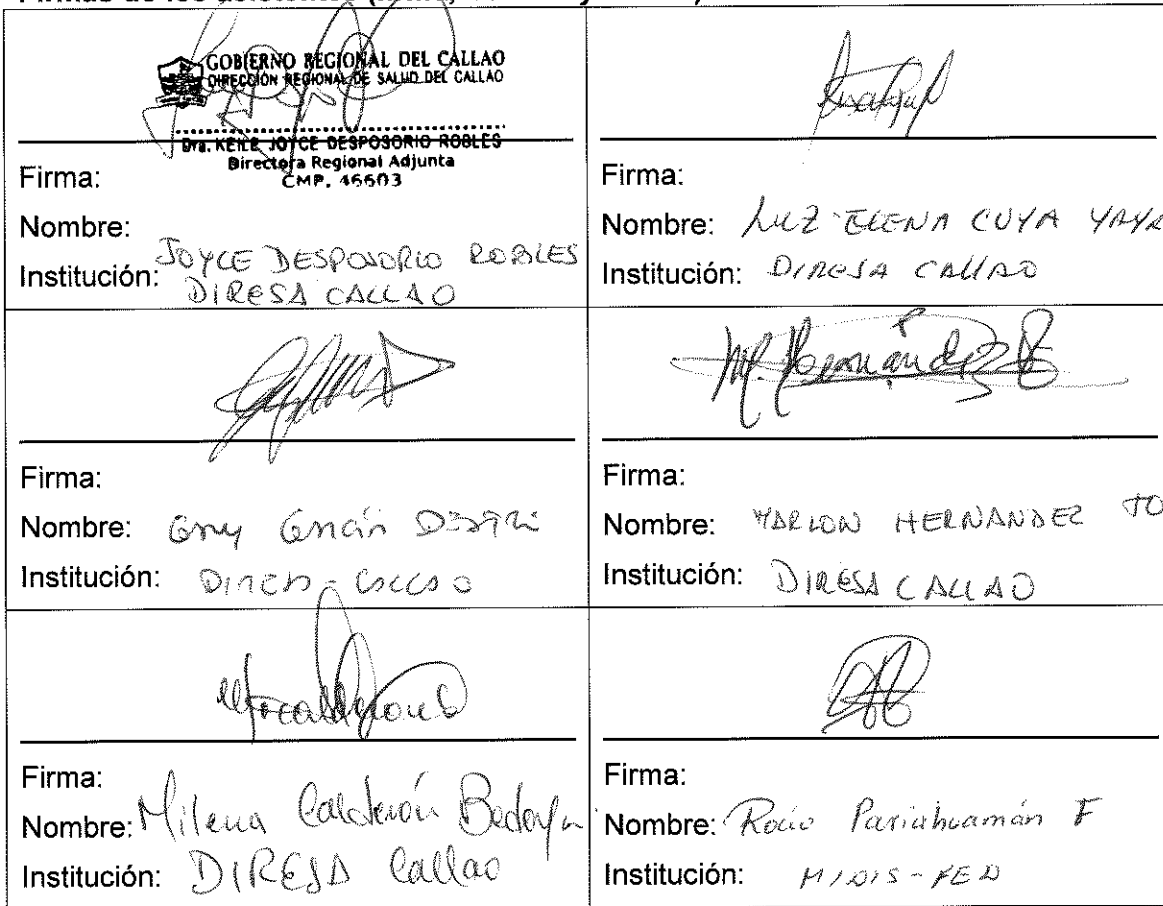 GOBIERNO REGIONAL DEL CALLAO
DIRECCIÓN REGIONAL DE SALUD DEL CALLAO
Dra. KEILE JOYCE DESPOSORIO ROBLES
Directora Regional Adjunta
CMP. 46603
Firma:
Nombre: JOYCE DESPOSORIO ROBLES
Institución: DIRESA CALLAO
Firma:
Nombre: LUZ ELENA CUYA YAYA
Institución: DIRESA CALLAO
Firma:
Nombre:
Institución: DIRESA - CALLAO
M. Hernández
Firma:
Nombre: MARLON HERNANDEZ TO
Institución: DIRESA CALLAO
Firma:
Nombre: Milena Calderón Bedoya
Institución: DIRESA Callao
Firma:
Nombre: Rocio Pariahuamán F
Institución: MIDIS-FED